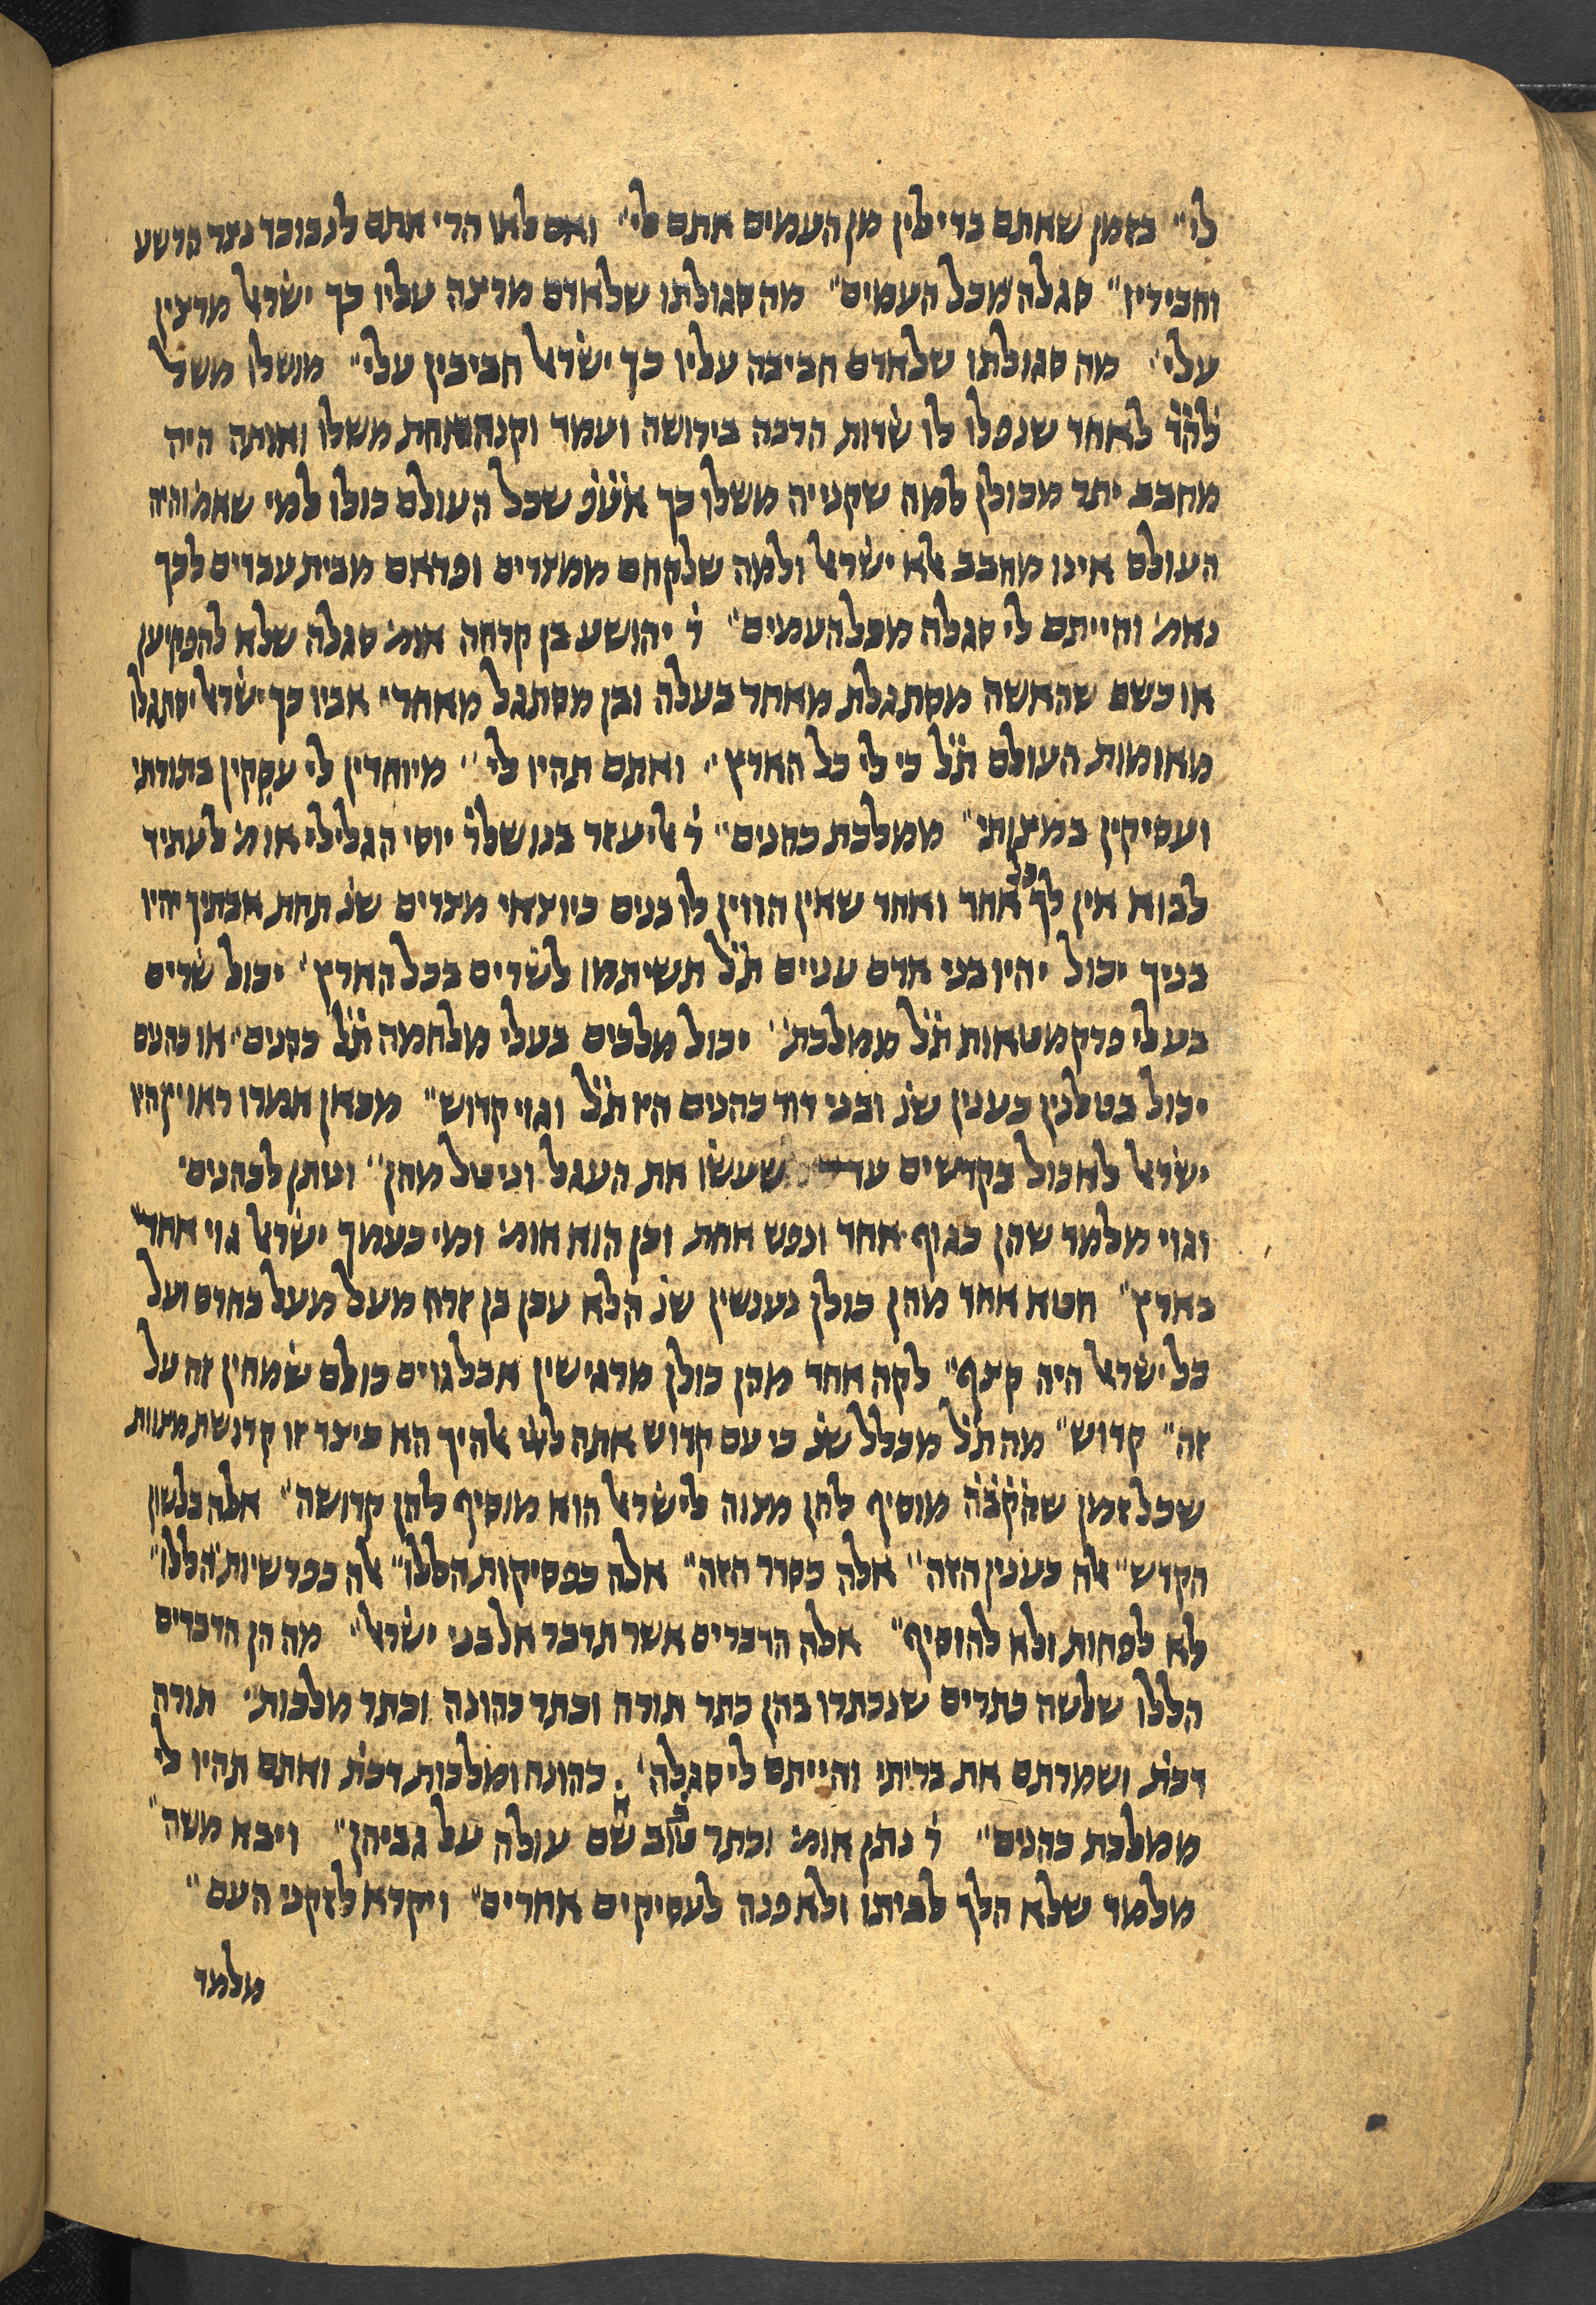 לי״ בזמן שאתם בדילין מן העמים אתם לי״ ואם לאו הרי אתם לנבוכד נצר הרשע
וחביריו״ סגלה מכל העמים״ מה סגולתו שלאדם מרצה עליו כך ישׂרא׳ מרצין
עלי׳ מה סגולתו שלאדם חביבה עליו כך ישׂרא׳ חביבין עלי״ מושלו משל
להׄדׄ לאחד שנפלו לו שׂדות הרבה בירושה ועמד וקנה אחת משלו ואותה היה
מחבב יתר מכולן למה שקנייה משלו כך אׄעׄפׄ שכל העולם כולו למי שאמ׳ והיה
העולם אינו מחבב אלא ישׂרא׳ ולמה שלקחם ממצרים ופדאם מבית עבדים לכך
נאמ׳ והייתם לי סגלה מכל העמים״ ר׳ יהושע בן קרחה אומ׳ סגלה שלא להפקיען
או כשם שהאשה מסתגלת מאחר בעלה ובן מסתגל מאחרי אביו כך ישׂרא׳ יסתגלו
מאומות העולם תׄלׄ כי לי כל הארץ״ ואתם תהיו לי״ מיוחדין לי עסקין בתורתי
ועסיקין במצותי״ ממלכת כהנים״ ר׳ אליעזר בנו שלר׳ יוסי הגלילי אומ׳ לעתיד
לבוא אין לך כל אחד ואחד שאין הווין לו בנים כיוצאי מצרים שנ׳ תחת אבתיך יהיו
בניך יכול יהיו בני אדם עניים תׄלׄ תשיתמו לשׂרים בכל הארץ׳ יכול שׂרים
בעלי פרקמטאות תׄלׄ ממלכת׳ יכול מלכים בעלי מלחמה תׄלׄ כהנים״ או כהנים
יכול בטלנין כענין שנ׳ ובני דוד כהנים היו תׄלׄ וגוי קדוש״ מכאן אמרו ראוין היו
ישׂרא׳ לאכול בקדשים עד שעשׂו את העגל וניטל מהן״ וניתן לכהנים׳
וגוי מלמד שהן כגוף אחד ונפש אחת וכן הוא אומ׳ ומי כעמך ישׂרא׳ גוי אחד״
בארץ״ חטא אחד מהן כולן נענשין שנ׳ הלא עכן בן זרח מעל מעל בחרם ועל
כל ישׂרא׳ היה קצף״ לקה אחד מהן כולן מרגישין אבל גוים כולם שׂמחין זה על
זה״ קדוש״ מה תׄלׄ מכלל שנ׳ כי עם קדוש אתה ליי׳ אלהיך הא כיצד זו קדושת מצוות
שכל זמן שהׄקׄבׄהׄ מוסיף להן מצוה לישׂרא׳ הוא מוסיף להן קדושה״ אלה בלשון
הקדש״ אלה כענין הזה״ אלה כסדר הזה״ אלה כפסיקות הללו״ אלה כפרשיות הללו״
לא לפחות ולא להוסיף״ אלה הדברים אשר תדבר אל בני ישׂרא׳״ מה הן הדברים
הללו שלשה כתרים שנכתרו בהן כתר תורה וכתר כהונה וכתר מלכות״ תורה
דכת׳ ושמרתם את בריתי והייתם לי סגלה׳ כהונה ומלכות דכת׳ ואתם תהיו לי
ממלכת כהנים״ ר׳ נתן אומ׳ וכתר טוב שם עולה על גביהן״ ויבא משה״
מלמד שלא הלך לביתו ולא פנה לעסיקים אחרים״ ויקרא לזקני העם״
מלמד